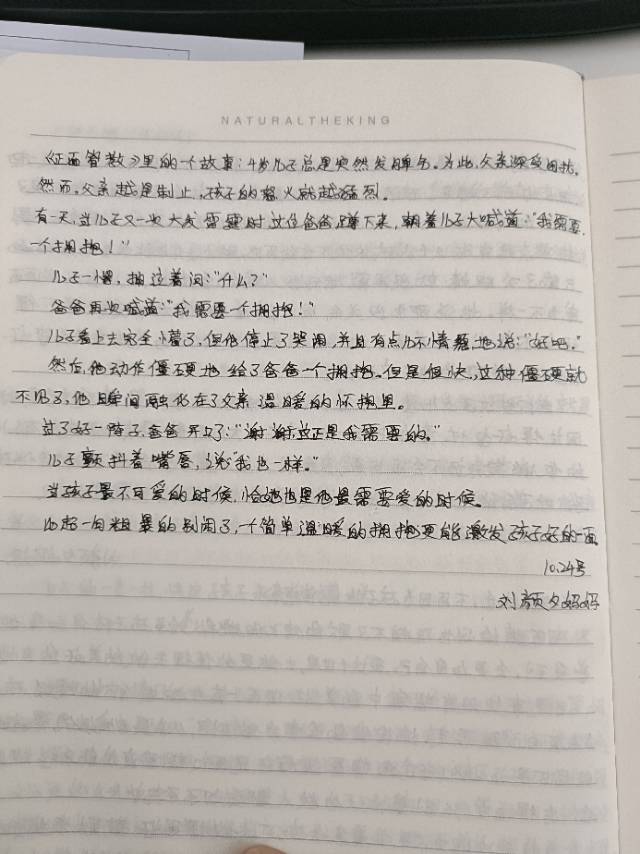 NATURALTHEKING
《正面管教》里的一个故事：4岁儿子总是突然发脾气。为此，父亲深受困扰。
然而，父亲越是制止，孩子的怒火就越猛烈。
有一天，当儿子又一次大发雷霆时，这位爸爸蹲下来，朝着儿子大喊道：“我需要
一个拥抱！”
儿子一愣，抽泣着问：“什么？”
爸爸再次喊道：“我需要一个拥抱！”
儿子看上去完全懵了，但他停止了哭闹，并且有点儿不情愿地说：“好吧。”
然后，他动作僵硬地给了爸爸一个拥抱。但是很快，这种僵硬就
不见了，他瞬间融化在了父亲温暖的怀抱里。
过了好一阵子，爸爸开口了：“谢谢，这正是我需要的。”
儿子颤抖着嘴唇，说“我也一样。”
当孩子最不可爱的时候，恰恰也是他最需要爱的时候。
比起一句粗暴的别闹了，一个简单温暖的拥抱更能激发孩子好的一面
10.24号
刘颜夕妈妈